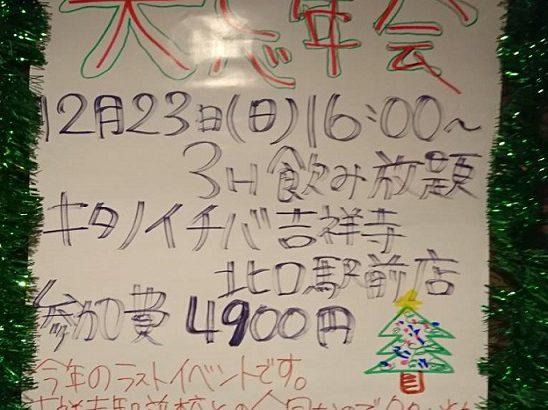 大忘年会
12月23日(日)16:00～
3H飲み放題
キタノイチバ吉祥寺
北口駅前店
参加費 4900円
今年のラストイベントです。